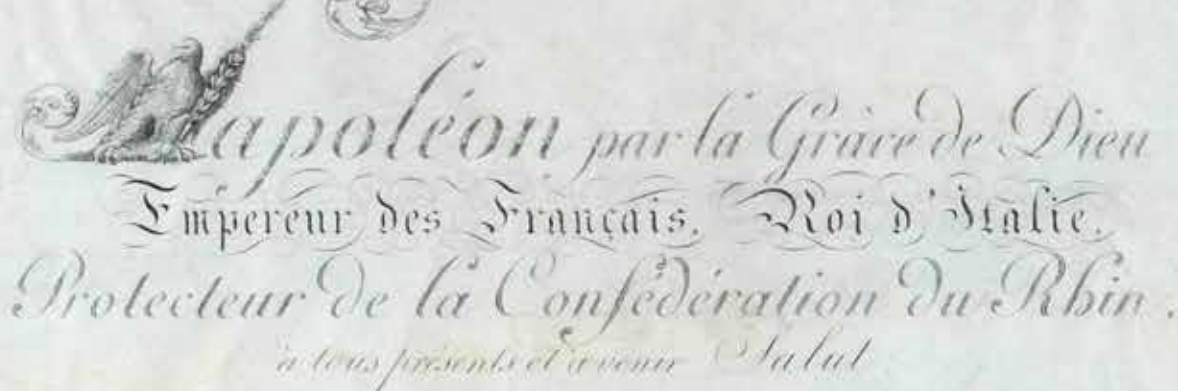 Napoléon par la Grâce de Dieu
Empereur des Français, Roi d'Italie,
Protecteur de la Confédération du Rhin,
à tous présents et à venir Salut